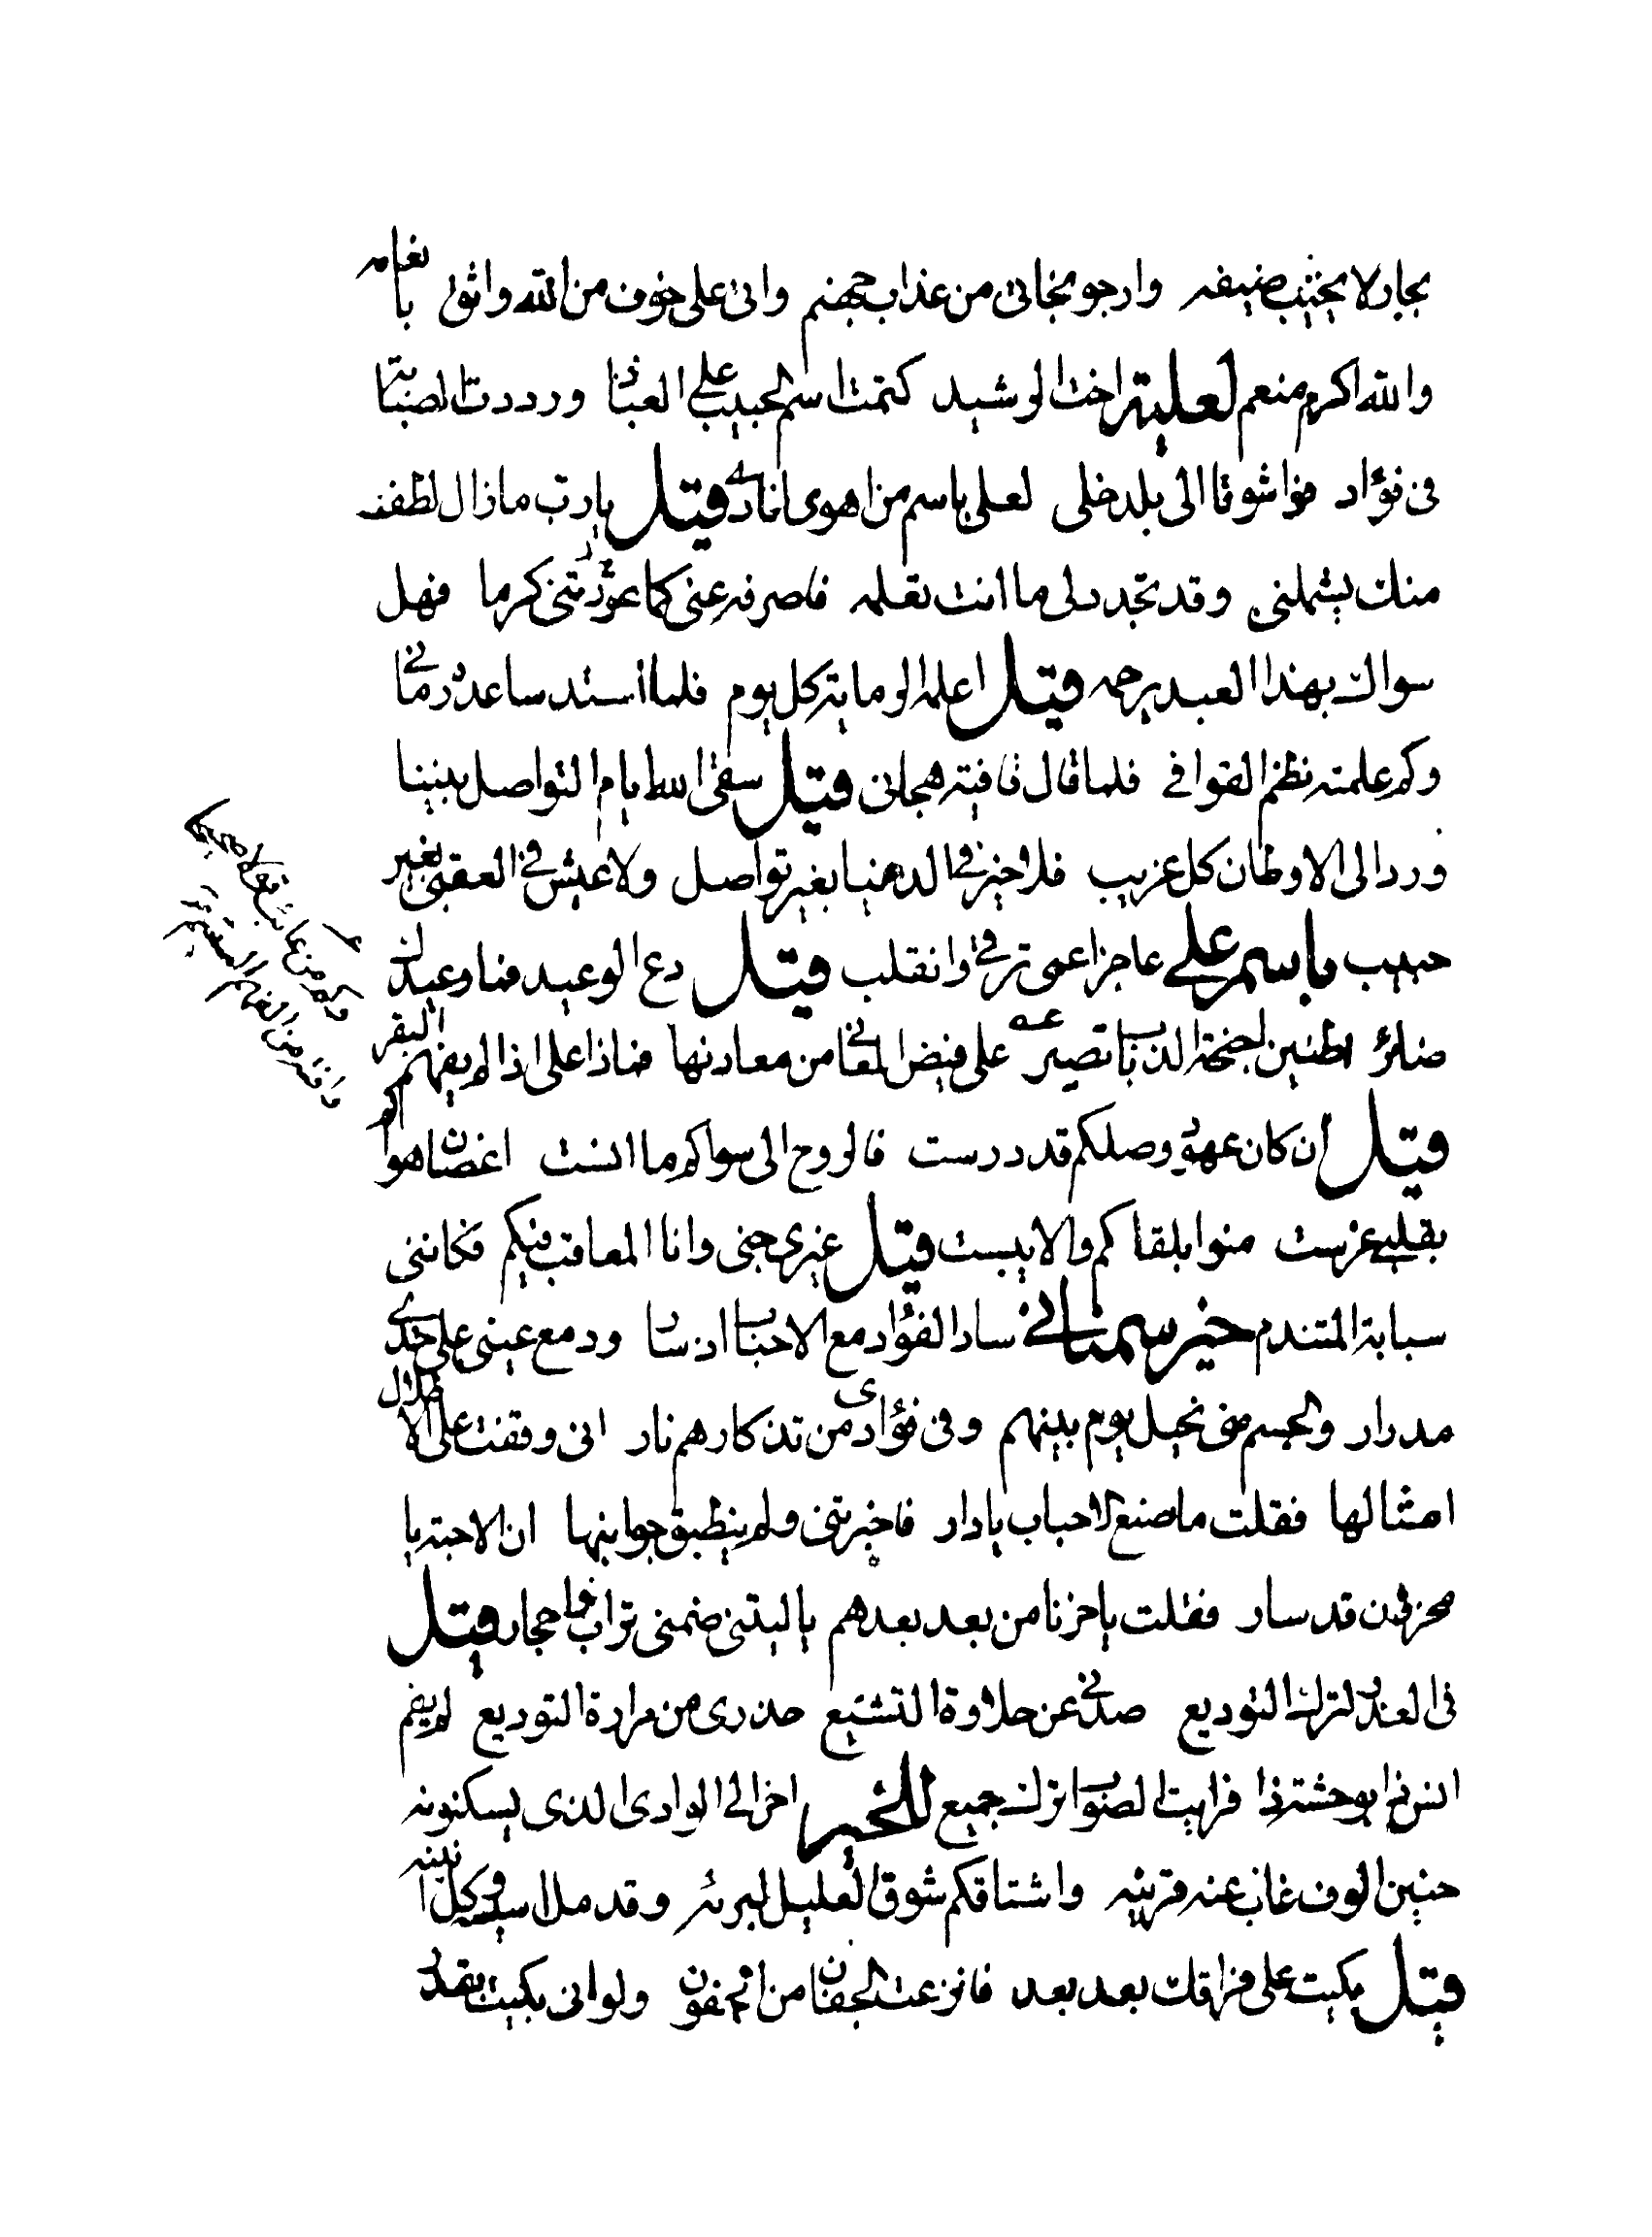 بجار لا يخيب ضيفه وارجو نجاتى من عذاب جهنم وانى على خوف من الله واثق بانعامه
والله اكرم منعم لعلية اخت الرشيد كتمت اسم الحبيب على العباد ورددت الصبابة
فى فؤاد فواشوقا الى بلد خلى لعلى باسم من اهوى انادى قيل يارب مازال لطف
منك يشملنى وقد تجدد لى ما انت تعلمه فاصرفه عنى كما عودتنى كرما فهل
سواك بهذا العبد يرحمه قيل اعلمه الرماية كل يوم فلما استد ساعده رمانى
وكم علمته نظم القوافى فلما قال قافية هجانى قيل سقى الله ايام التواصل بيننا
ورد الى الاوطان كل غريب فلا خير فى الدنيا بغير تواصل ولا عيش فى العقبى بغير
حبيب باسم على عاجز اعمى ترقى وانقلب قيل دع الوعيد فما وعيدك
ضائر اطنين اجنحة الذباب يضير على فيض المعانى من معادنها فماذا على اذا لم يفهم البقر
قيل ان كان عهود وصلكم قد درست فالروح الى سواكم ما انست اغصان هواكم
بقلبى غرست منوا بلقاكم والا يبست قيل غيرى جنى وانا المعاقب فيكم فكاننى
سبابة المتندم خير سمنانى سار الفؤاد مع الاحباب اذ ساروا ودمع عينى على خدى
مدرار والجسم منى نحيل يوم بينهم وفى فؤادى من تذكارهم نار انى وقفت على الاطلال
امثالها فقلت ما صنع الاحباب يا دار فاخبرتنى ولم ينطبق جوابنها ان الاحبة يا
محزون قد سار فقلت يا حزنا من بعد بعدهم يا ليتنى ضمنى تراب واحجار قيل
فى العذر لترك التوديع صدنى عن حلاوة التشييع حذرى من مرارة التوديع لم يقم
انس ذا بوحشة ذا فرايت الصواب ترك جميع للخير اخر الى الوادى الذى يسكنونه
حنين الوف غاب عنه قرينه واشتاقكم شوق العليل لبرئه وقد مل
قيل بكيت على فراقك بعد بعد فانزعت الجفان من الجفون ولو انى بكيت بقدر